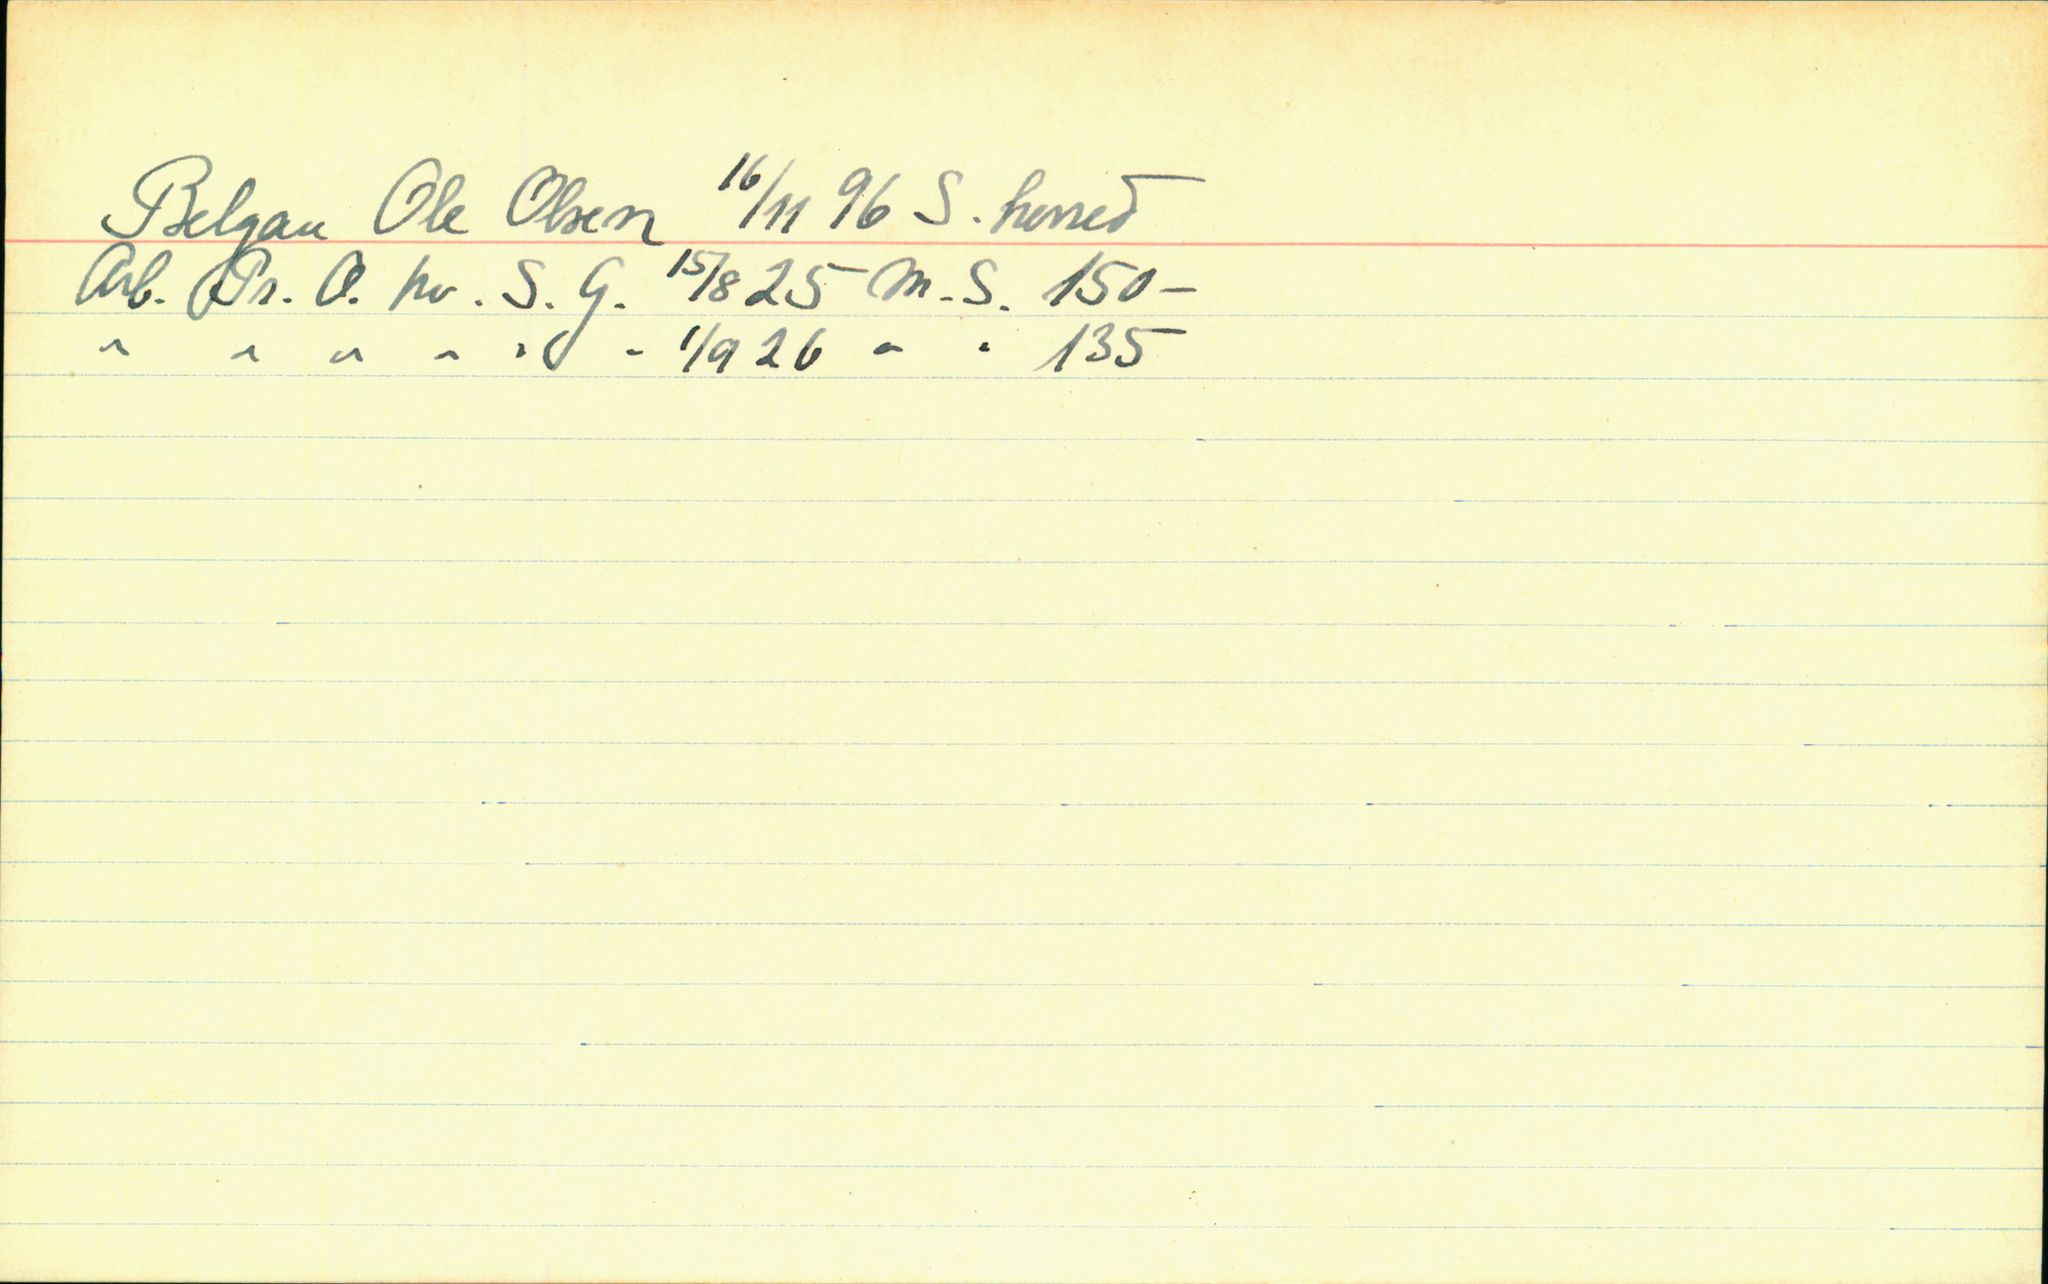 Belgau Ole Olsen 16/11 96 S. herred
Arb. Pr. O. hv. S. G. 15/8 25 M. S. 150-
" " " " " " 1/9 26 " " 135